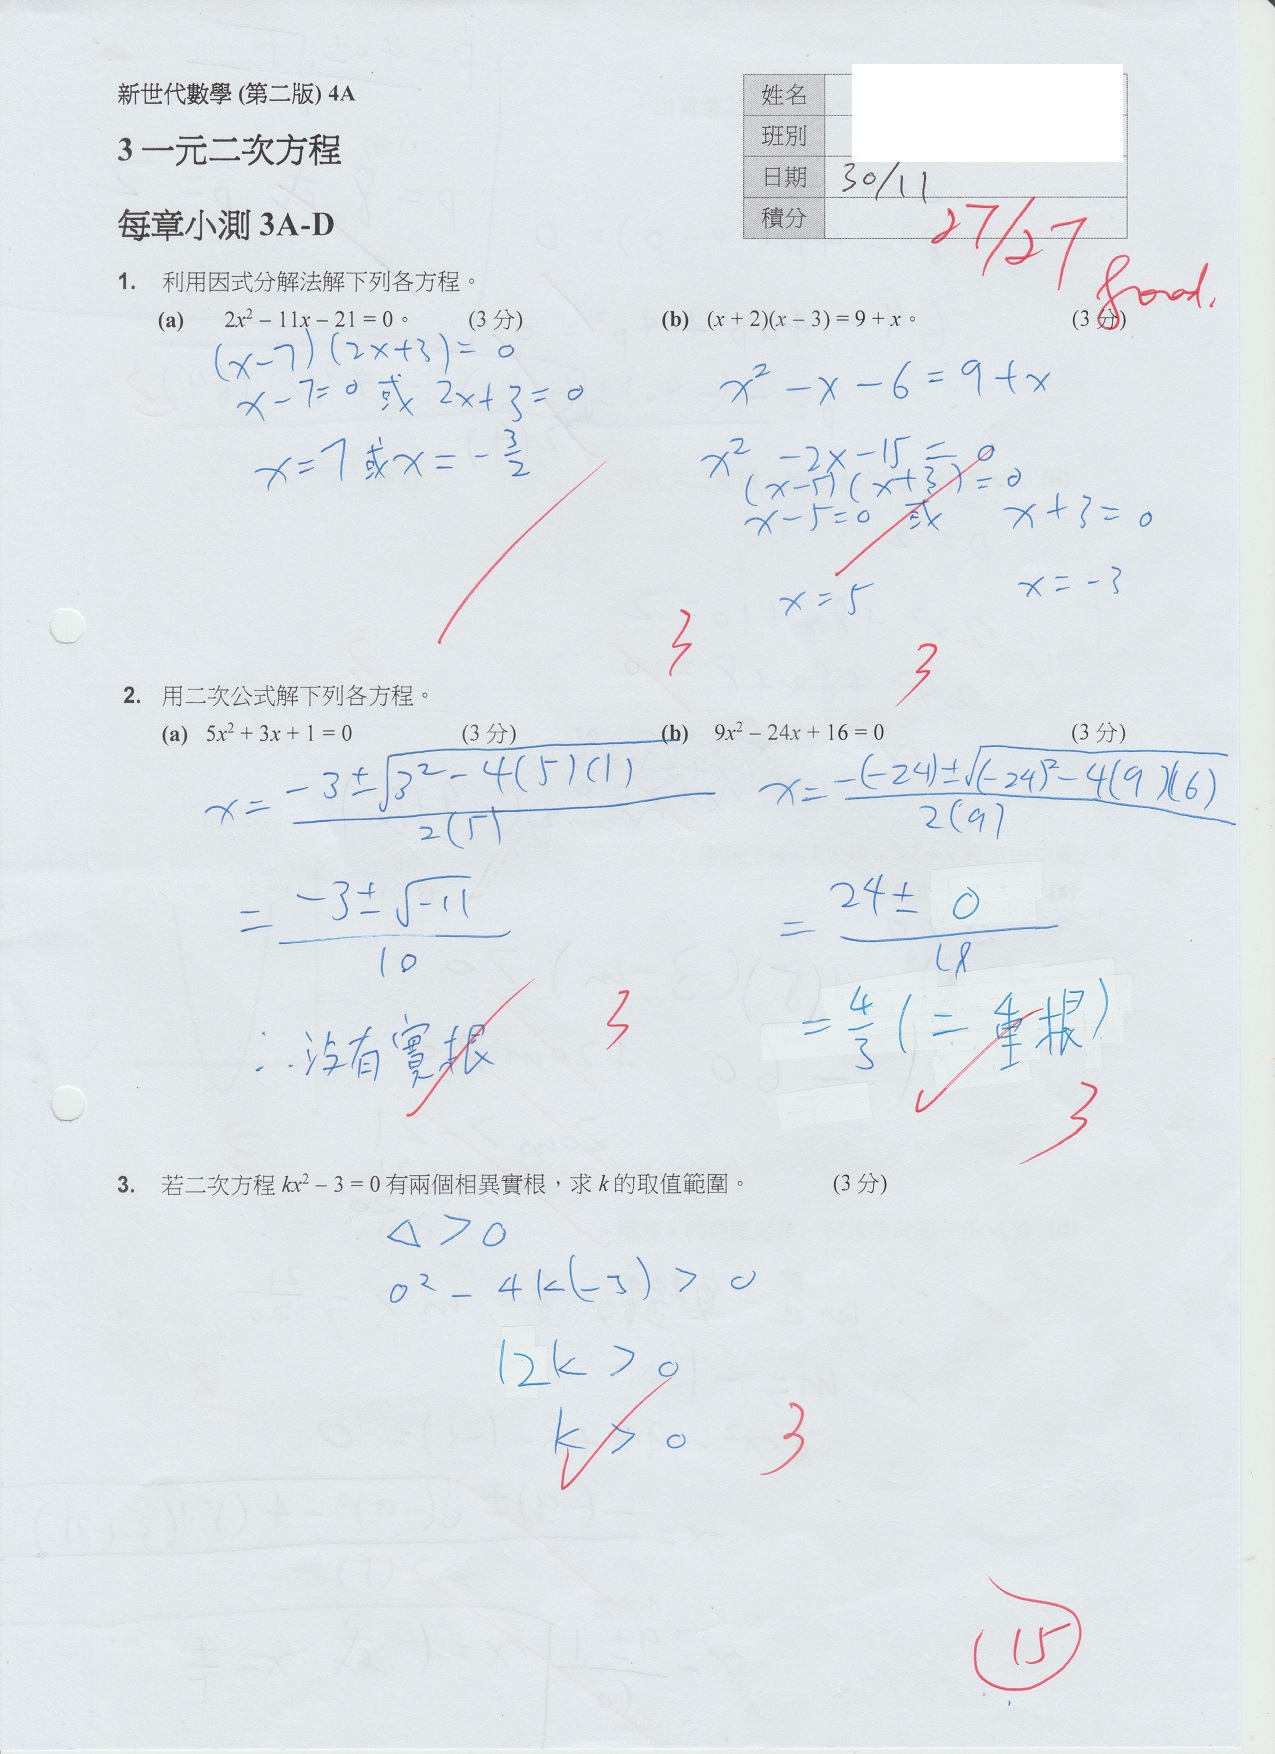 新世代數學 (第二版) 4A
3 一元二次方程
每章小測 3A-D
姓名
班別
日期 30/11
積分 27/27
Good.
1. 利用因式分解法解下列各方程。
(a) 2x² – 11x – 21 = 0。 (3 分)
(x-7)(2x+3)=0
x-7=0 或 2x+3=0
x=7 或 x=-3/2
3
(b) (x + 2)(x – 3) = 9 + x。 (3 分)
x²-x-6=9+x
x²-2x-15=0
(x-5)(x+3)=0
x-5=0 或 x+3=0
x=5 x=-3
3
2. 用二次公式解下列各方程。
(a) 5x² + 3x + 1 = 0 (3 分)
x=(-3±√(3²-4(5)(1)))/2(5)
=(-3±√-11)/10
∴沒有實根
3
(b) 9x² – 24x + 16 = 0 (3 分)
x=(-(-24)±√((-24)²-4(9)(16)))/2(9)
=(24±0)/18
=4/3(二重根)
3
3. 若二次方程 kx² – 3 = 0 有兩個相異實根，求 k 的取值範圍。 (3 分)
△>0
0²-4k(-3)>0
12k>0
k>0
3
15